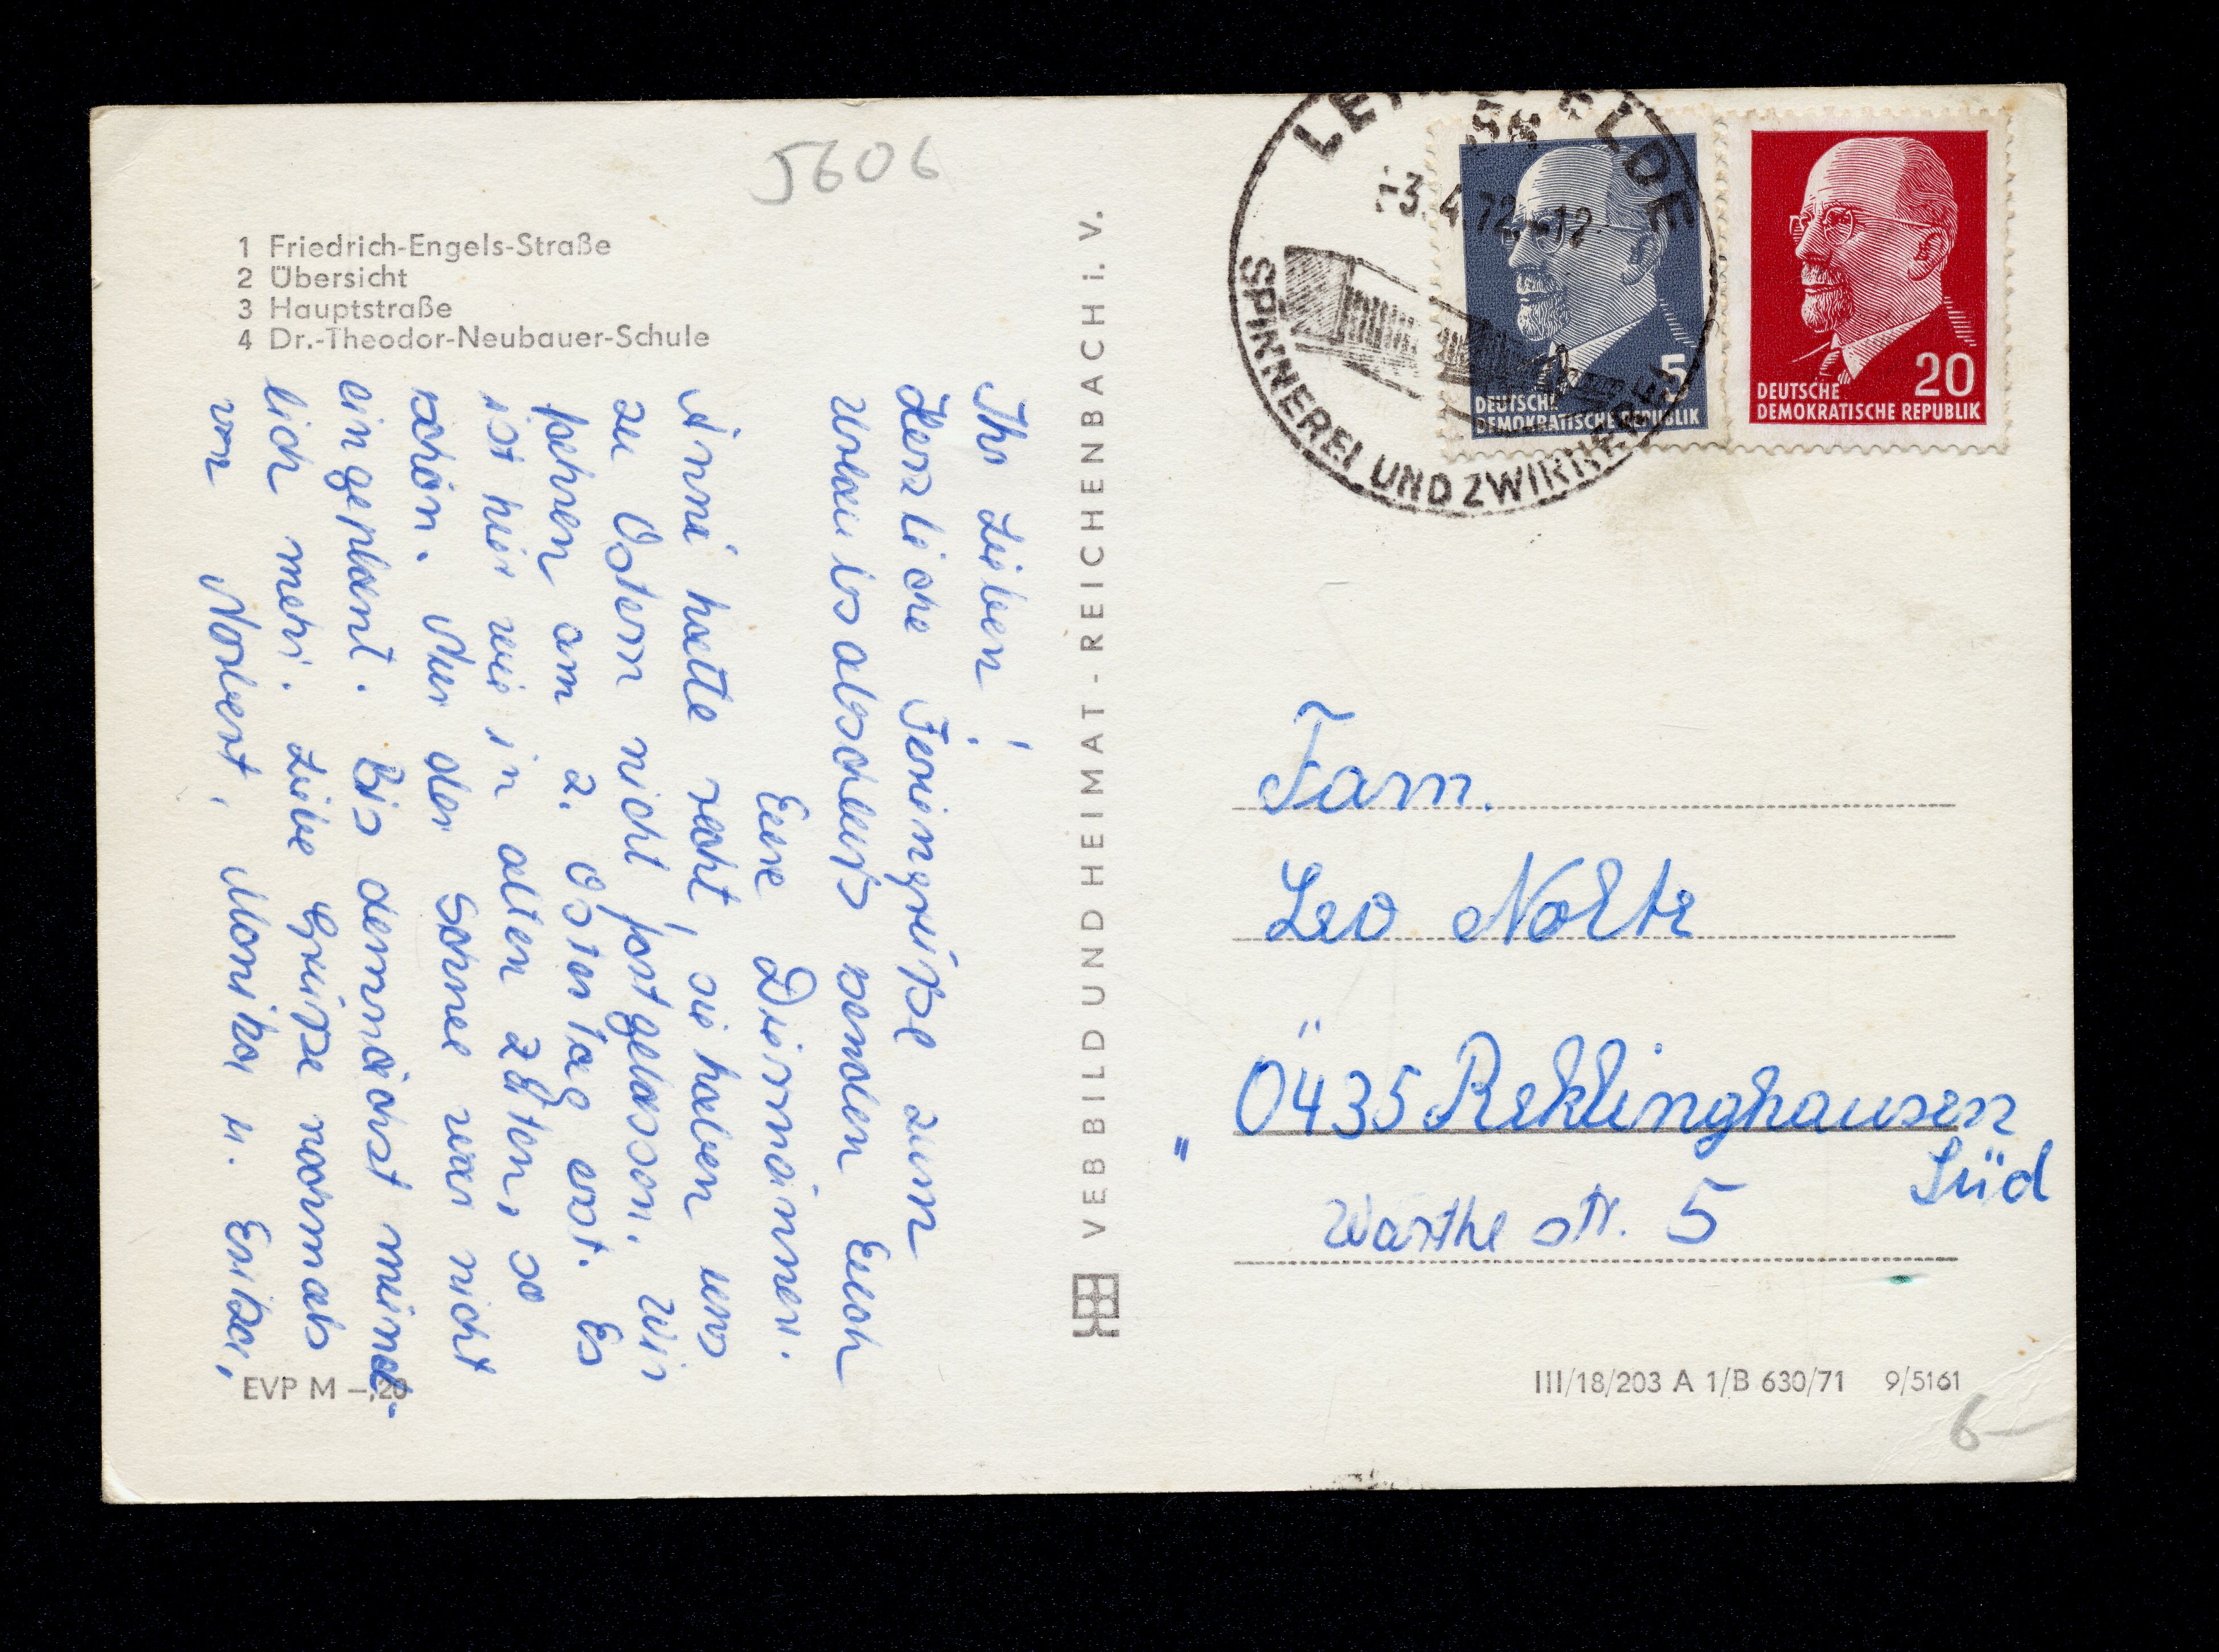 5606
1 Friedrich-Engels-Straße
2 Übersicht
3 Hauptstraße
4 Dr.-Theodor-Neubauer-Schule
Ihr Lieben!
Herzliche Feriengrüße zum
Urlaubsabschluß senden Euch
Eure Diermänner.
Anni hatte recht, sie haben uns
zu Ostern nicht fortgelassen. Wir
fahren am 2. Ostertag erst. Es
ist hier wie in alten Zeiten, so
schön. Nur der Schnee war nicht
eingeplant. Bis demnächst münd-
lich mehr. Liebe Grüße nochmals
von Norbert, Monika u. Erika,
EVP M –,20
VEB BILD UND HEIMAT - REICHENBACH i. V.
-3.4.72-12
SPINNEREI UND ZWIRNEREI
5
DEUTSCHE
DEMOKRATISCHE REPUBLIK
20
DEUTSCHE
DEMOKRATISCHE REPUBLIK
Fam.
Leo Nolte
0435 Reklinghausen
Süd
Warthe str. 5
III/18/203 A 1/B 630/71 9/5161
6–